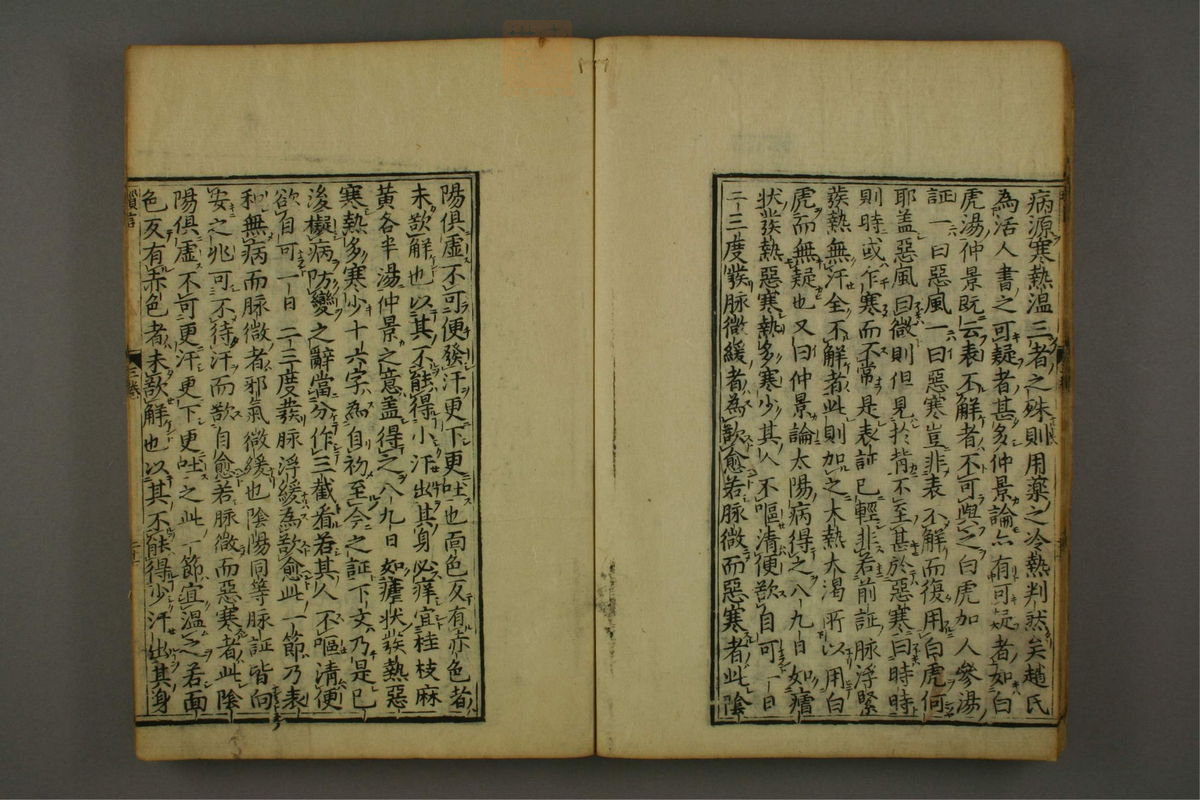 病源寒熱温三者之殊則用藥之冷熱判然矣趙氏
為活人書之可疑者甚多仲景論亦有可疑者如白
虎湯仲景既云表不解者不可與之白虎加人參湯
証一曰惡風一曰惡寒豈非表不解而復用白虎何
耶盖惡風曰微則但見於背不至甚於惡寒曰時時
則時或乍寒而不常是表証已輕非若前証脉浮緊
發熱無汗全不解者此則加之大熱大渴所以用白
虎而無疑也又曰仲景論太陽病得之八九日如瘧
状發熱惡寒熱多寒少其人不嘔清便欲自可一日
二三度發脉微緩者為欲愈若脉微而惡寒者此陰
陽俱虚不可便發汗更下更吐也面色反有赤色者
未欲解也以其不能得小汗出其身必痒宜桂枝麻
黄各半湯仲景之意盖得之八九日如瘧状發熱惡
寒熱多寒少十六字為自初至今之証下文乃是已
後擬病防變之辭當分作三截看若其人不嘔清便
欲自可一日二三度發脉浮緩為欲愈此一節乃表
和無病而脉微者邪氣微緩也陰陽同等脉証皆向
安之兆可不待汗而欲自愈若脉微而惡寒者此陰
陽俱虚不可更汗更下更吐之此一節宜温之若面
色反有赤色者未欲解也以其不能得少汗出其身
三巻